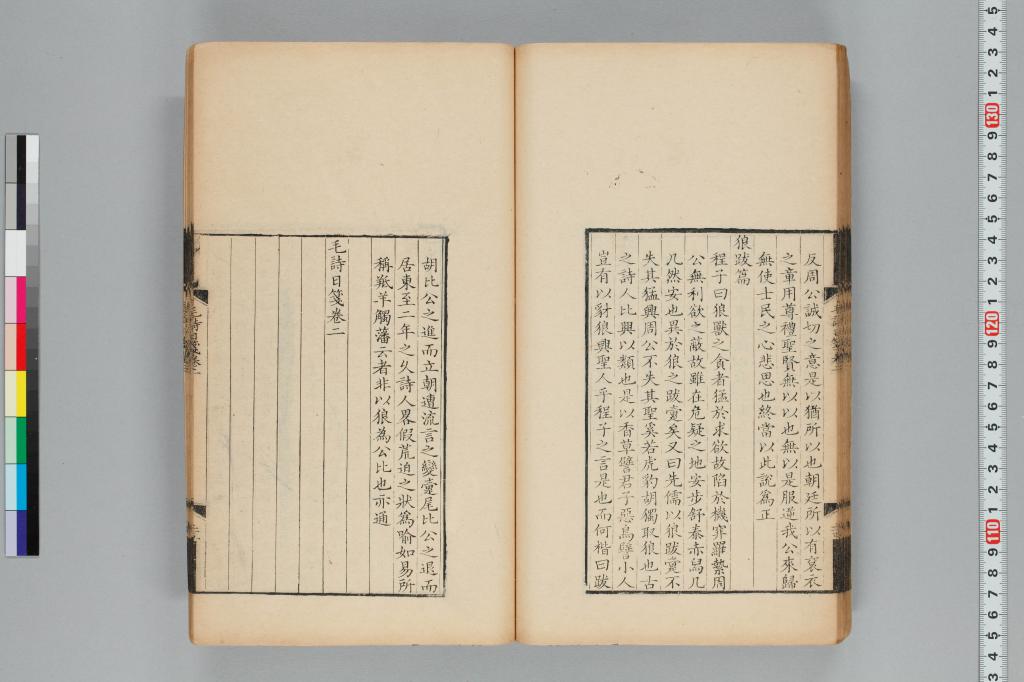 反周公誠切之意是以猶所以也朝廷所以有袞衣
之章用尊禮聖賢無以以也無以是服逆我公來歸
無使士民之心悲思也終當以此說為正
狼跋篇
程子曰狼獸之貪者猛於求欲故陷於機穽羅縶周
公無利欲之蔽故雖在危疑之地安步舒泰赤舄几
几然安也異於狼之跋疐矣又曰先儒以狼跋疐不
失其猛興周公不失其聖奚若虎豹胡獨取狼也古
之詩人比興以類也是以香草譬君子惡鳥譬小人
豈有以豺狼興聖人乎程子之言是也而何楷曰跋
胡比公之進而立朝遭流言之變疐尾比公之退而
居東至二年之久詩人畧假荒迫之狀為喻如易所
稱羝羊觸藩云者非以狼為公比也亦通
毛詩日箋卷二